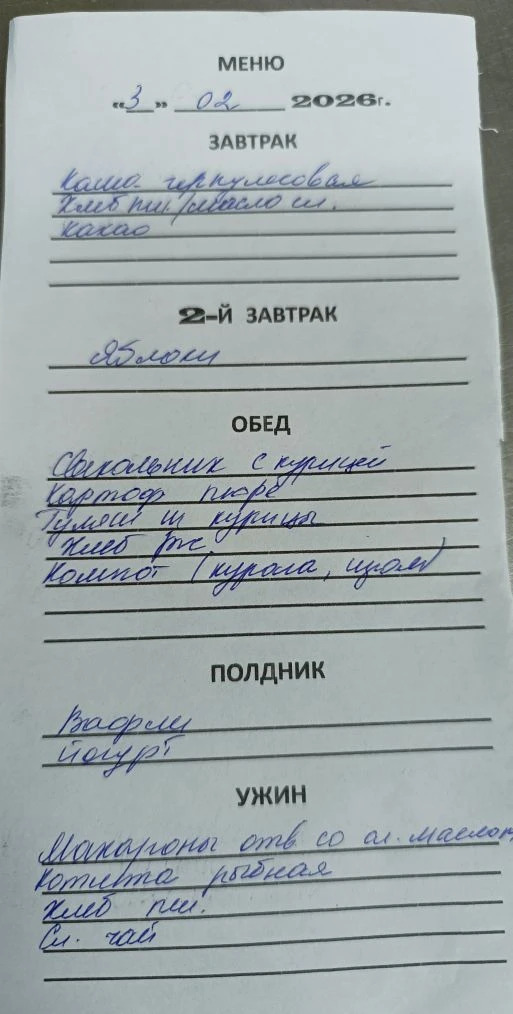 МЕНЮ
«3» 02 2026г.
ЗАВТРАК
Каша геркулесовая
Хлеб пш. /масло сл.
Какао
2-й ЗАВТРАК
Яблоки
ОБЕД
Свекольник с курицей
Картоф пюре
Гуляш из курицы
Хлеб рж
Компот (курага, изюм)
ПОЛДНИК
Вафли
Йогурт
УЖИН
Макароны отв. со сл. маслом
Котлета рыбная
Хлеб пш.
Сл. чай